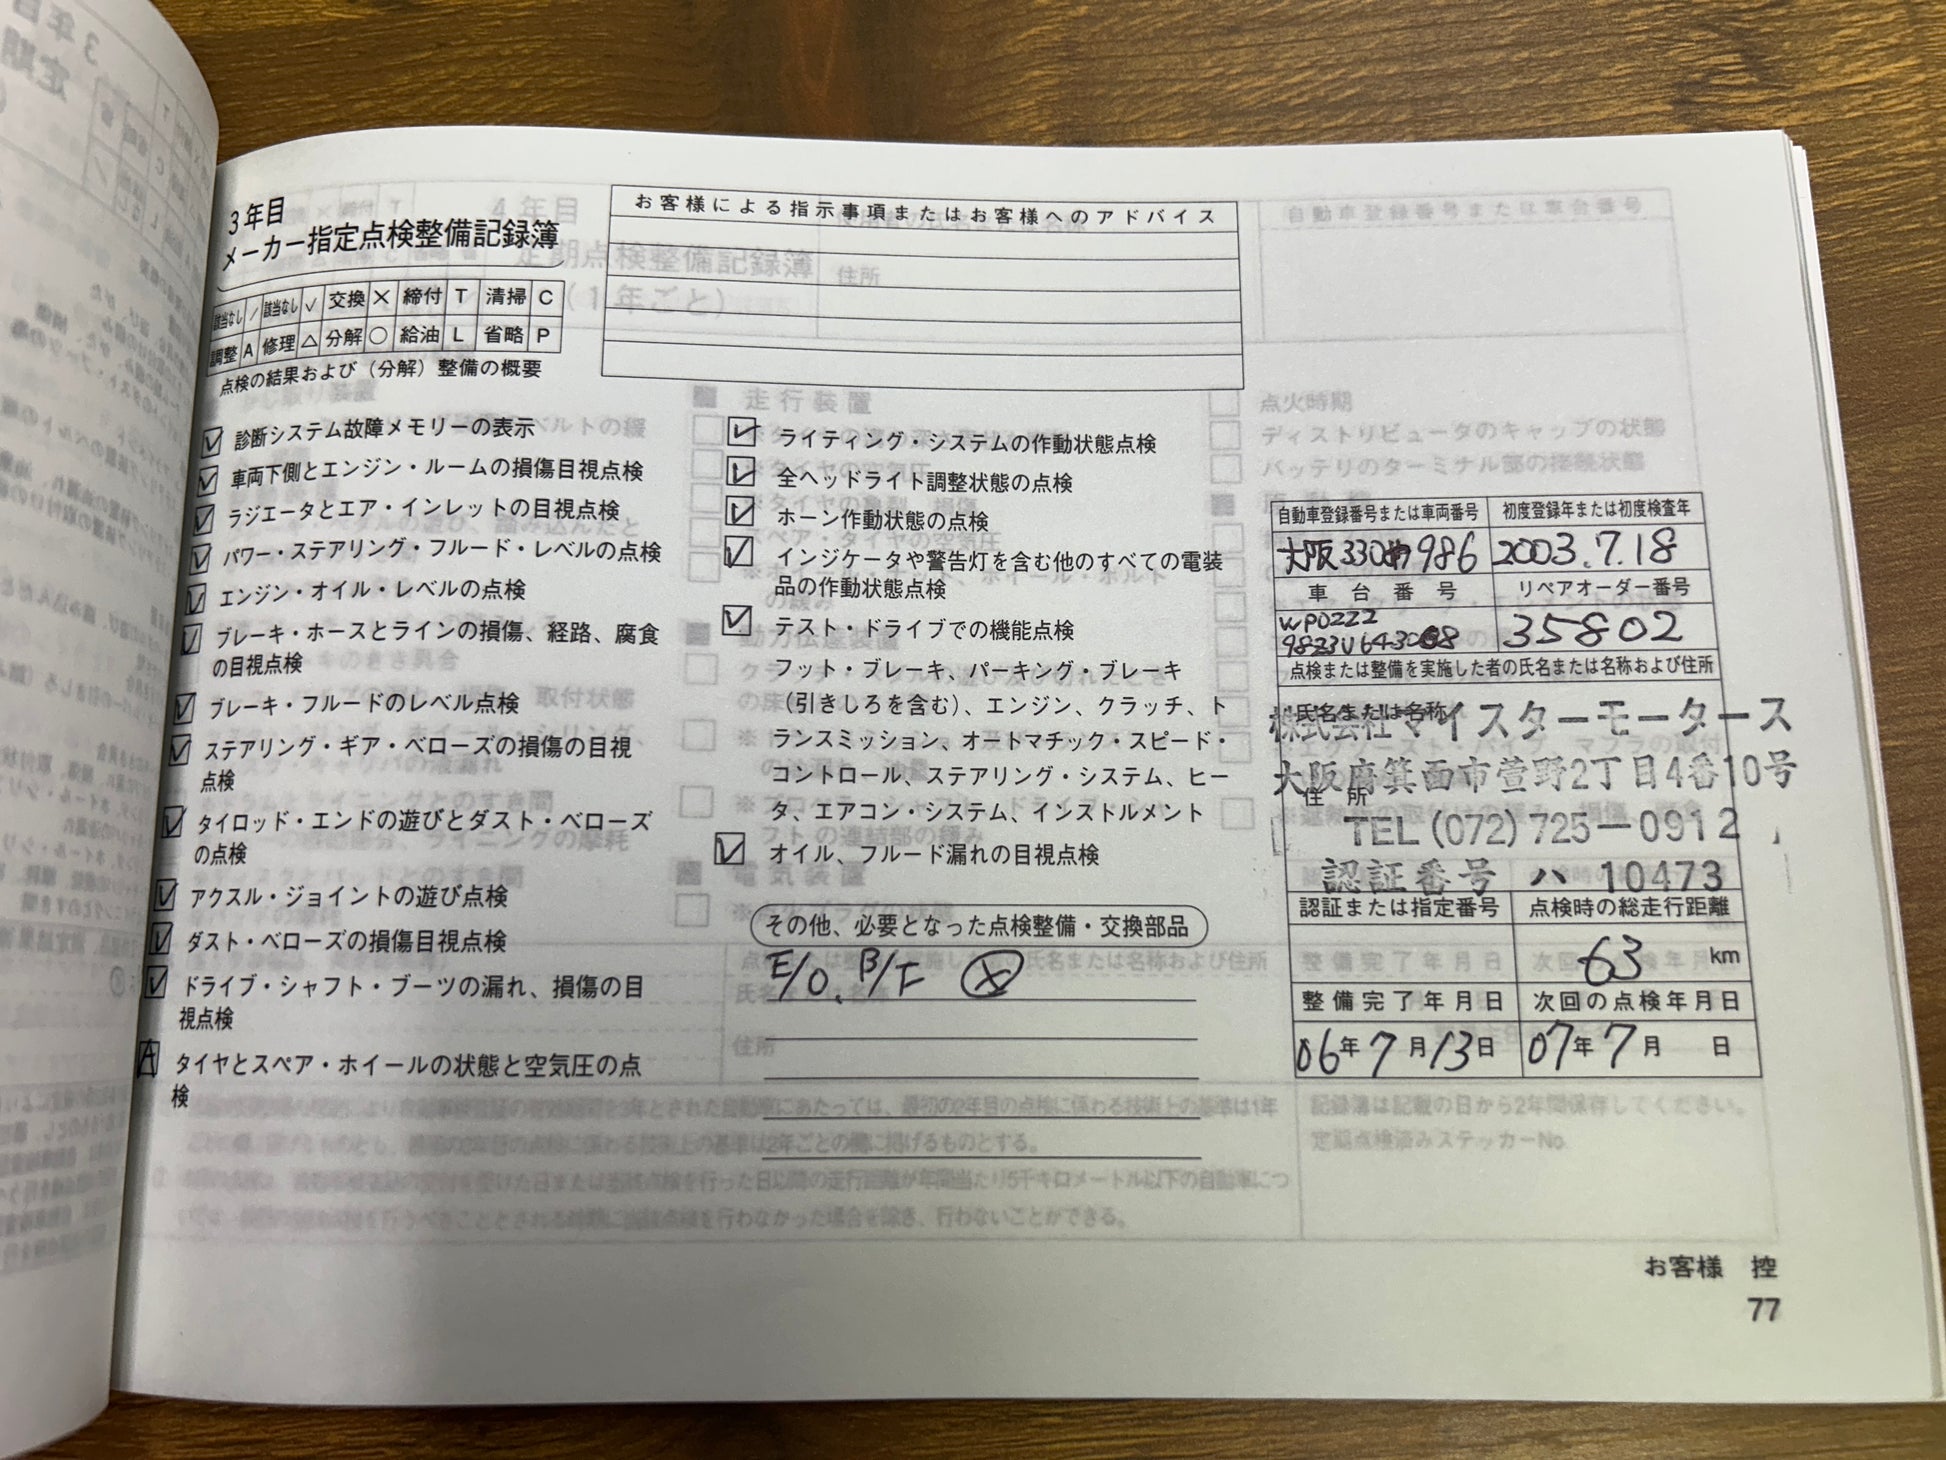 3年目
メーカー指定点検整備記録簿
該当なし / 該当なし ✓ 交換 × 締付 T 清掃 C
調整 A 修理 △ 分解 ○ 給油 L 省略 P
点検の結果および(分解)整備の概要
お客様による指示事項またはお客様へのアドバイス
診断システム故障メモリーの表示
車両下側とエンジン・ルームの損傷目視点検
ラジエータとエア・インレットの目視点検
パワー・ステアリング・フルード・レベルの点検
エンジン・オイル・レベルの点検
ブレーキ・ホースとラインの損傷、経路、腐食
の目視点検
ブレーキ・フルードのレベル点検
ステアリング・ギア・ベローズの損傷の目視
点検
タイロッド・エンドの遊びとダスト・ベローズ
の点検
アクスル・ジョイントの遊び点検
ダスト・ベローズの損傷目視点検
ドライブ・シャフト・ブーツの漏れ、損傷の目
視点検
A タイヤとスペア・ホイールの状態と空気圧の点
検
ライティング・システムの作動状態点検
全ヘッドライト調整状態の点検
ホーン作動状態の点検
インジケータや警告灯を含む他のすべての電装
品の作動状態点検
テスト・ドライブでの機能点検
フット・ブレーキ、パーキング・ブレーキ
(引きしろを含む)、エンジン、クラッチ、ト
ランスミッション、オートマチック・スピード・
コントロール、ステアリング・システム、ヒー
タ、エアコン・システム、インストルメント
オイル、フルード漏れの目視点検
その他、必要となった点検整備・交換部品
E/O、B/F ⊗
自動車登録番号または車両番号 初度登録年または初度検査年
大阪330 986 2003.7.18
車台番号 リペアオーダー番号
WP0ZZZ 35802
点検または整備を実施した者の氏名または名称および住所
氏名または名称
株式会社マイスターモータース
大阪府箕面市萱野2丁目4番10号
住所
TEL(072)725-0912
認証番号 ハ 10473
認証または指定番号 点検時の総走行距離
63 km
整備完了年月日 次回の点検年月日
06年7月13日 07年7月 日
お客様 控
77